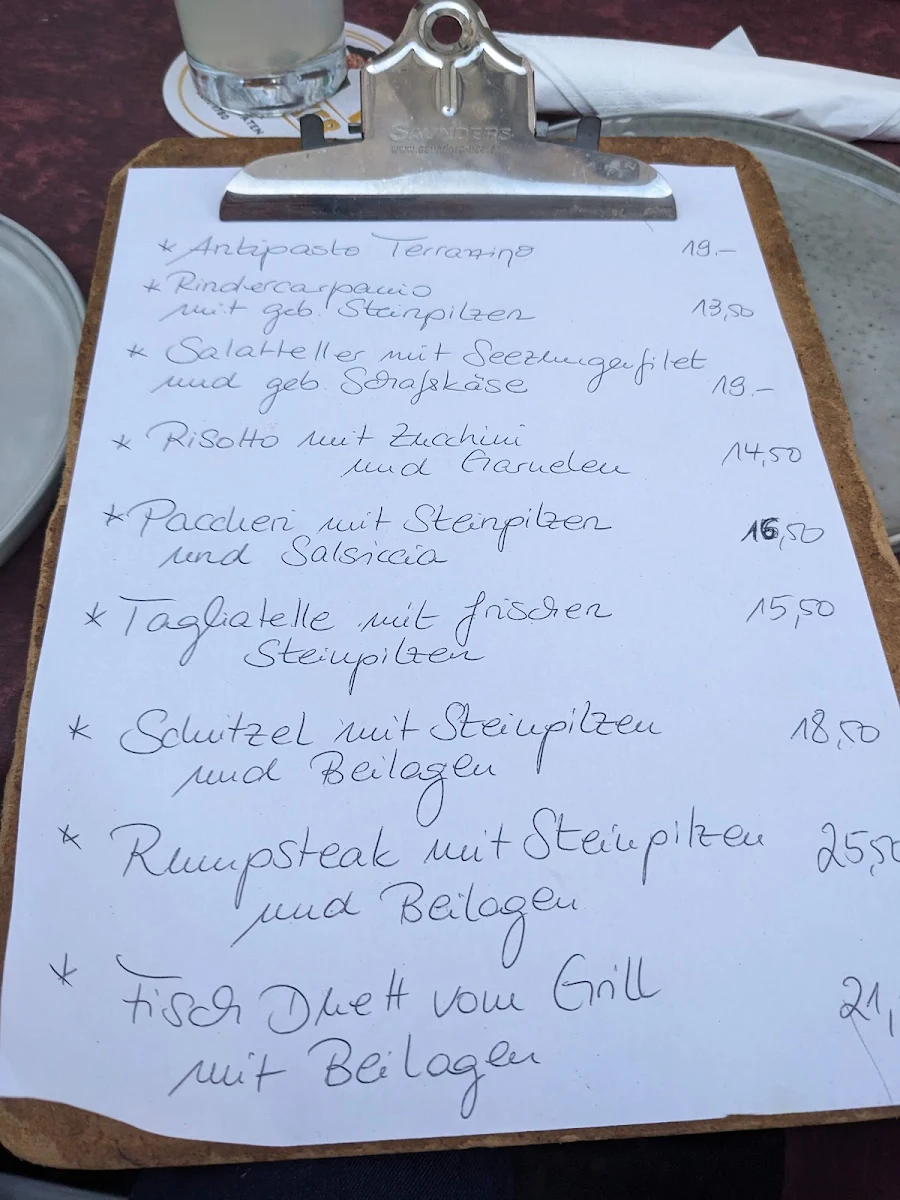 SAUNDERS
* Antipasto Terrazzino 19.–
* Rindercarpaccio
mit geb. Steinpilzen 13,50
* Salatteller mit Seezungenfilet
und geb. Schafskäse 19.–
* Risotto mit Zucchini
und Garnelen 14,50
* Paccheri mit Steinpilzen 16,50
und Salsiccia
* Tagliatelle mit frischen 15,50
Steinpilzen
* Schnitzel mit Steinpilzen 18,50
und Beilagen
* Rumpsteak mit Steinpilzen 25,50
und Beilagen
* Fisch Duett vom Grill 21,
mit Beilagen